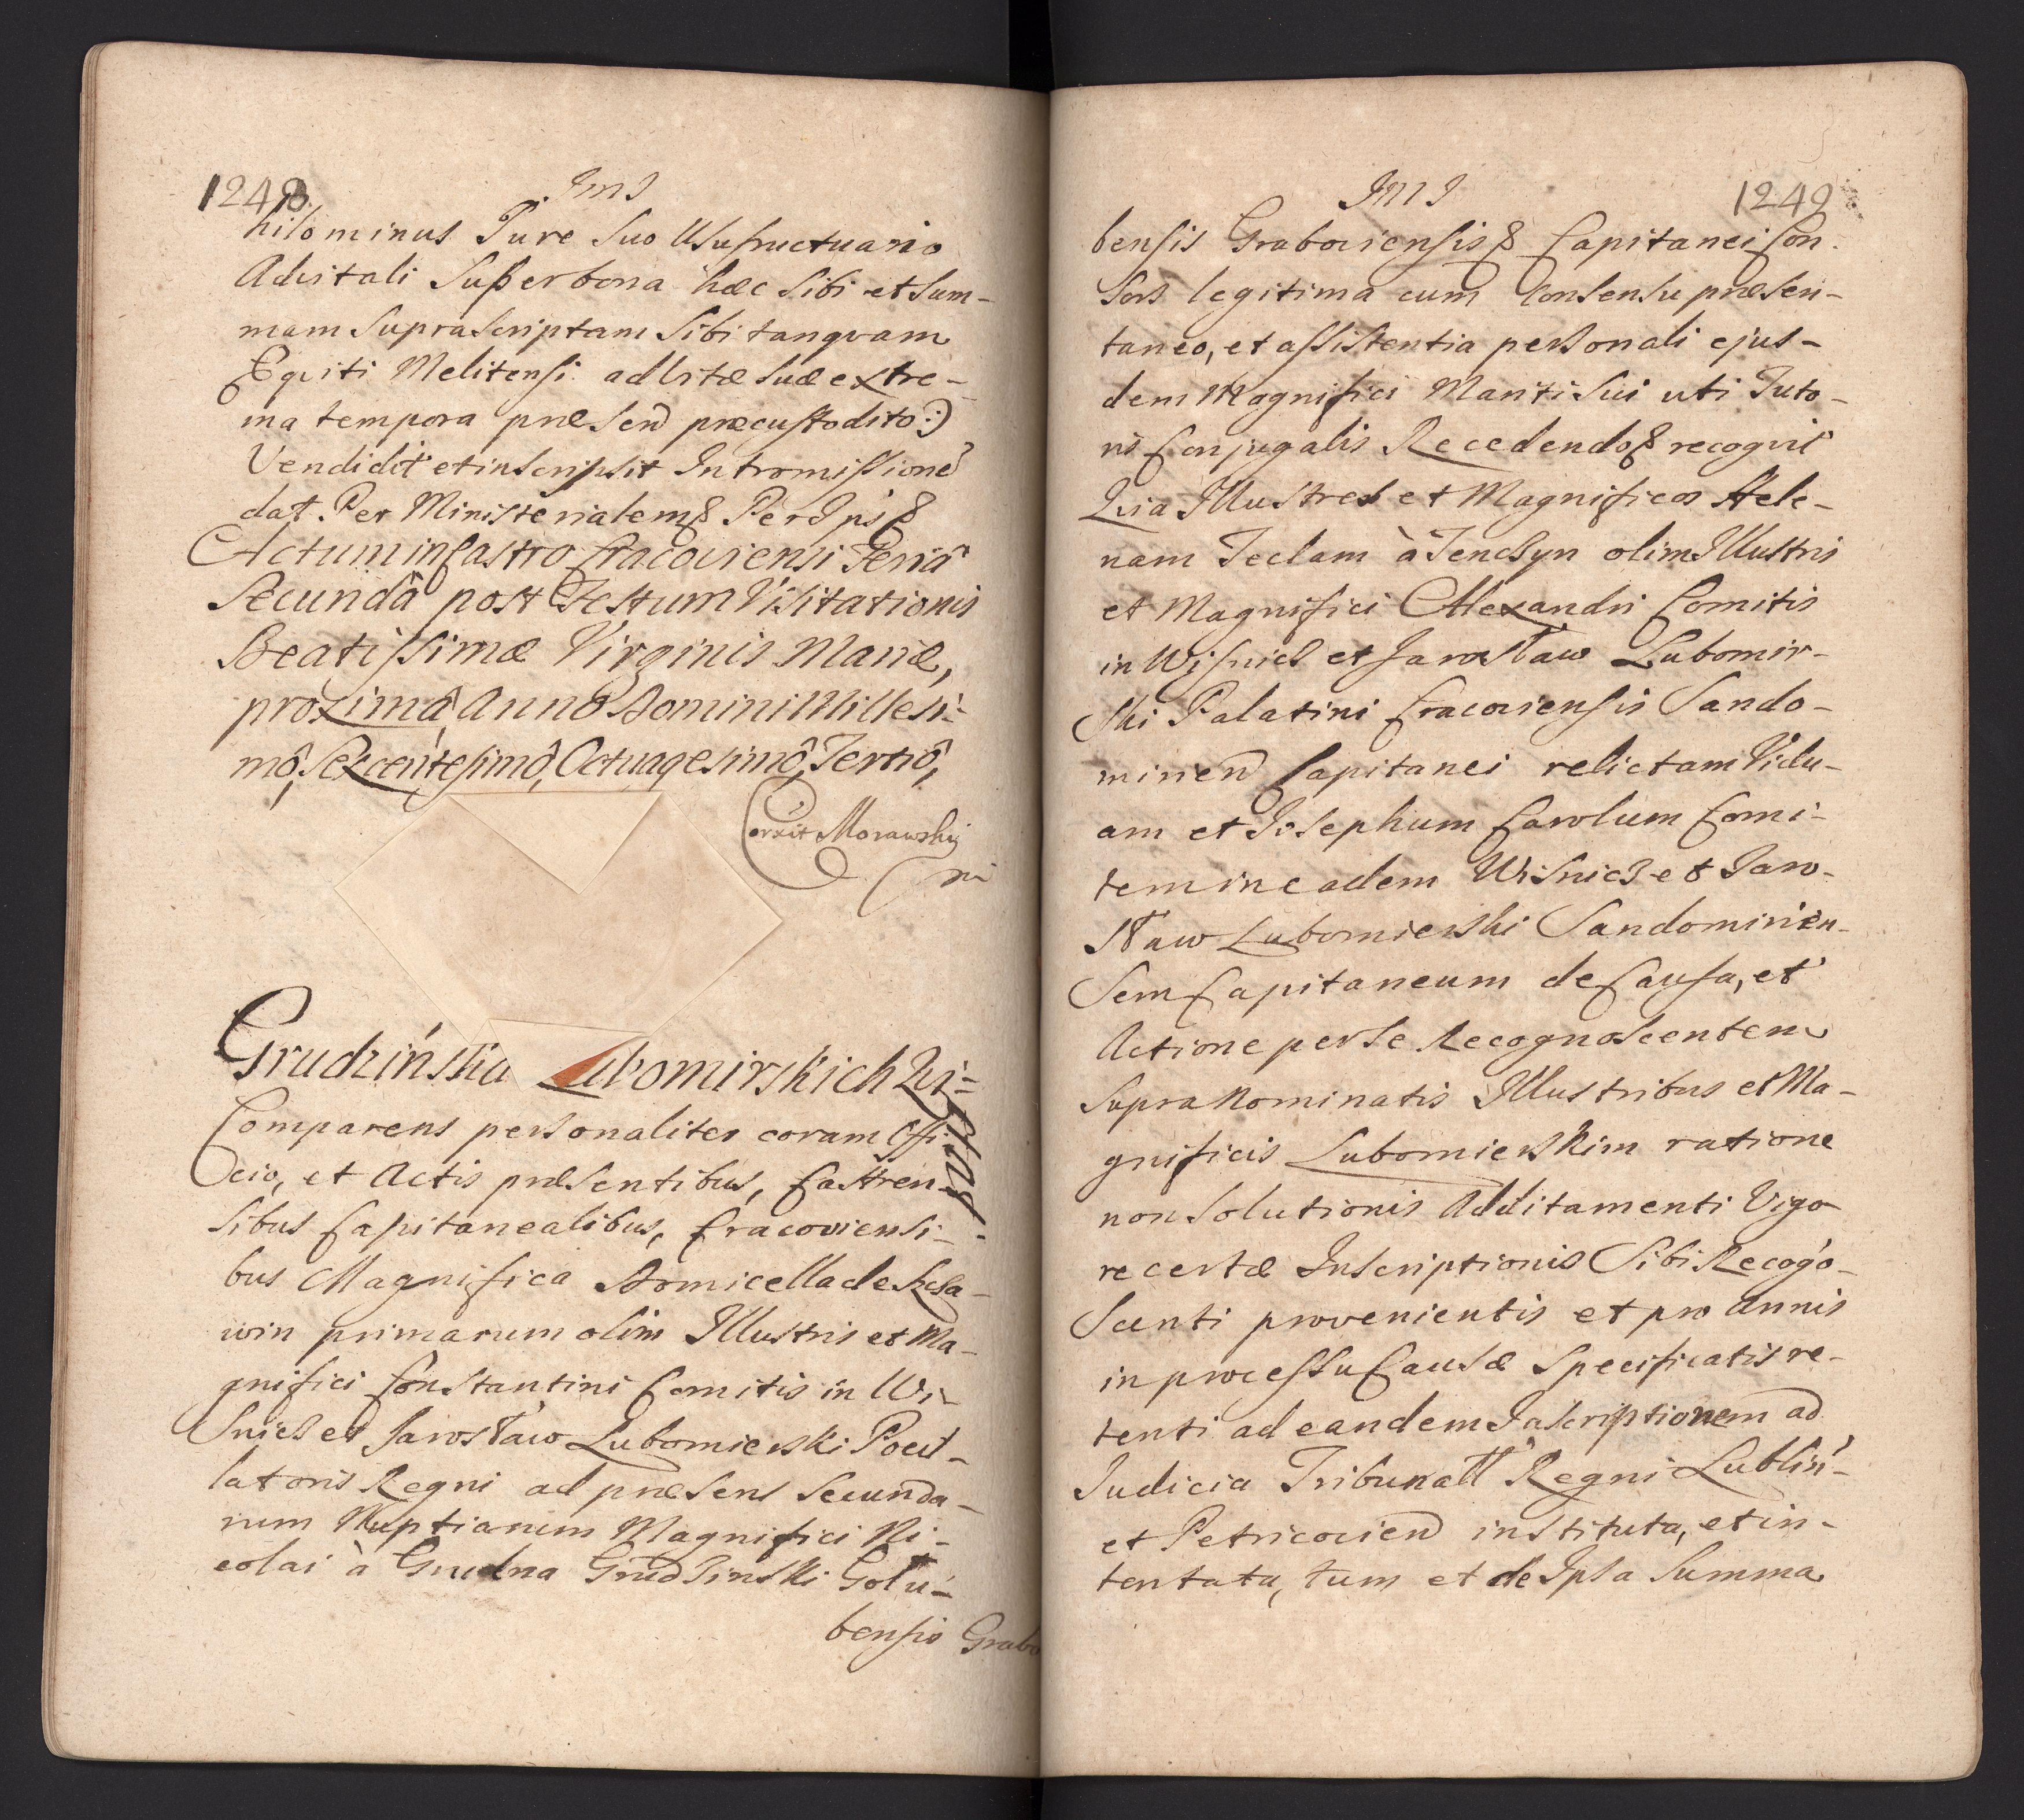 1248.
Ims
hilominus Jure Suo Usufructuario
Advitali Super bona hæc Sibi et Sum-
mam Supra Scriptam Sibi tanqvam
Eqviti Melitensi ad Vitæ Suæ extre-
ma tempora præsend præcustodito:)
Vendidit et inscripsit Intromissione
dat. Per Ministerialem& Per Ips&
Actum in Castro Cracoviensi Feriâ
Secundâ post Festum Visitationis
Beatissimæ Virginis Mariæ,
proximâ Annô Domini Millesi=
mô, Sexcentesimô, Octuagesimô, Tertiô,
Corxit Morawskj
Grudzińska Lubomirskich Qvi=
ettat
Comparens personaliter coram Offi-
cio, et Actis præsentibus, Castren-
Sibus Capitanealibus, Cracoviensi-
bus Magnifica Domicella de
win primarum olim Illustris et Ma-
gnifici Constantini Comitis in Wi-
Snicz et Jarosław Lubomierski Pocil-
latoris Regni ad præsens Secunda-
rum Nuptiarum Magnifici Ni-
colai à Grudna Grudzinski Golu-
bensis Grabo
Ims
1249
bensis Graboviensis& Capitanei Con-
Sors legitima cum Consensu præsen-
taneo, et assistentia personali ejus-
dem Magnifici Mariti Sui uti Tuto-
ris Conjugalis Recedendo& recognit
Qvia Illustres et Magnificos Hele-
nam Teclam à Tenczyn olim Illustris
et Magnifici Alexandri Comitis
in Wisnicz et Jarosław Lubomir-
ski Palatini Cracoviensis Sando-
miriend Capitanei relictam Vidu-
am et Josephum Carolum Comi-
tem in eadem Wisnicz et Jaro-
sław Lubomierski Sandomirien-
Sem Capitaneum de Causa, et
Actione per Se Recognoscentem
Supra Nominatis Illustribus et Ma-
gnificis Lubomierskim ratione
non Solutionis Additamenti Vigo-
re certæ Inscriptionis Sibi Recogo-
Scenti provenientis et pro Annis
in processu Causæ Specificatis re-
tenti ad eandem Inscriptionem ad
Judicia Tribunall Regni Lublin-
et Petricoviend instituta, et in-
tentata, tum et de Ipsa Summa